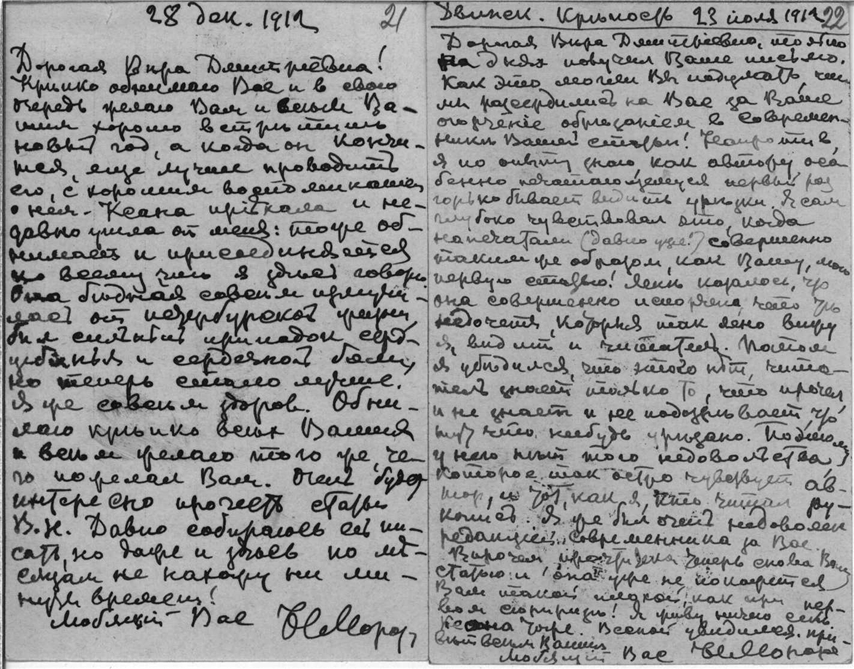 28 дек. 1912
21
Дорогая Вѣра Дмитріевна!
Крѣпко обнимаю Вас и в свою
очередь желаю Вам и всѣм Ва-
шим хорошо встрѣтить
новый год, а когда он кончи-
тся, еще лучше проводить
его, с хорошим воспоминанием
о нем. Ксана пріѣхала и не-
давно ушла от меня: тоже об-
нимает и присоединяется
ко всему что я здѣсь говорю.
Она бѣдная совсѣм
от петербургской
был сильный припадок серд-
и сердечной боли,
но теперь стало лучше.
Я же совсѣм здоров. Обни-
маю крѣпко всѣх Ваших
и всѣм желаю того же, че-
го пожелал Вам. Очень будет
интересно прочесть статью
В.Н. Давно собираюсь ей пи-
сать, но даже и здѣсь по мѣ-
сяцам не нахожу ни ми-
нуты времени!
Любящій Вас Н Мороз
Двинск. Крѣпость 23 іюля 1912
22
Дорогая Вѣра Дмитріевна, только
на днях получил Ваше письмо.
Как это могли Вы подумать, что
мы разсердились на Вас за Ваше
огорченіе обрѣзаніем в современ-
никѣ Вашей статьи! Напротив,
я по опыту знаю как автору осо-
бенно печатающемуся первый раз
горько бывает видѣть урѣзки. Я сам
глубоко чувствовал это, когда
напечатали (давно уже!) совершенно
таким же образом, как Вашу, мою
первую статью! Мнѣ казалось, что
она совершенно испорчена, что тѣ
недочеты, которые так ясно вижу
я, видит и читатель. Потом
я убѣдился, что этого нѣт, чита-
тель знает только то, что прочел
и не знает и не подозрѣвает что
тут что нибудь урѣзано. Поэтому
у него нѣт того недовольства,
которое так остро чувствует ав-
тор, и тот, как я, кто читал ру-
копись. Я же был очень недоволен
редакціей современника за Вас.
Впрочем теперь снова Вашу
статью и она уже не покажется
Вам такой плохой, как при пер-
вом сюрпризѣ! Я живу ничего себѣ.
Ксана тоже. Весной увидимся. При-
вѣт всѣм Вашим
Любящій Вас Н Морозов